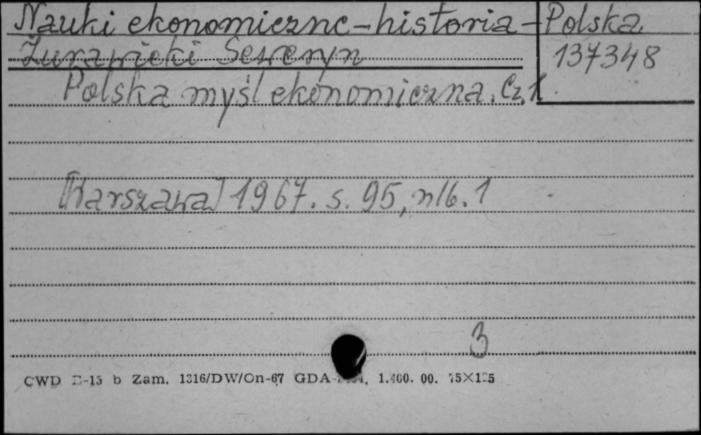 Nauki ekonomiczne-historia-Polska
Żurawicki Seweryn
137348
Polska myśl ekonomiczna. Cz. 1
[Warszawa] 1967. s. 95, nlb. 1
3
CWD Zam. 1316/DW/On-67 GDA